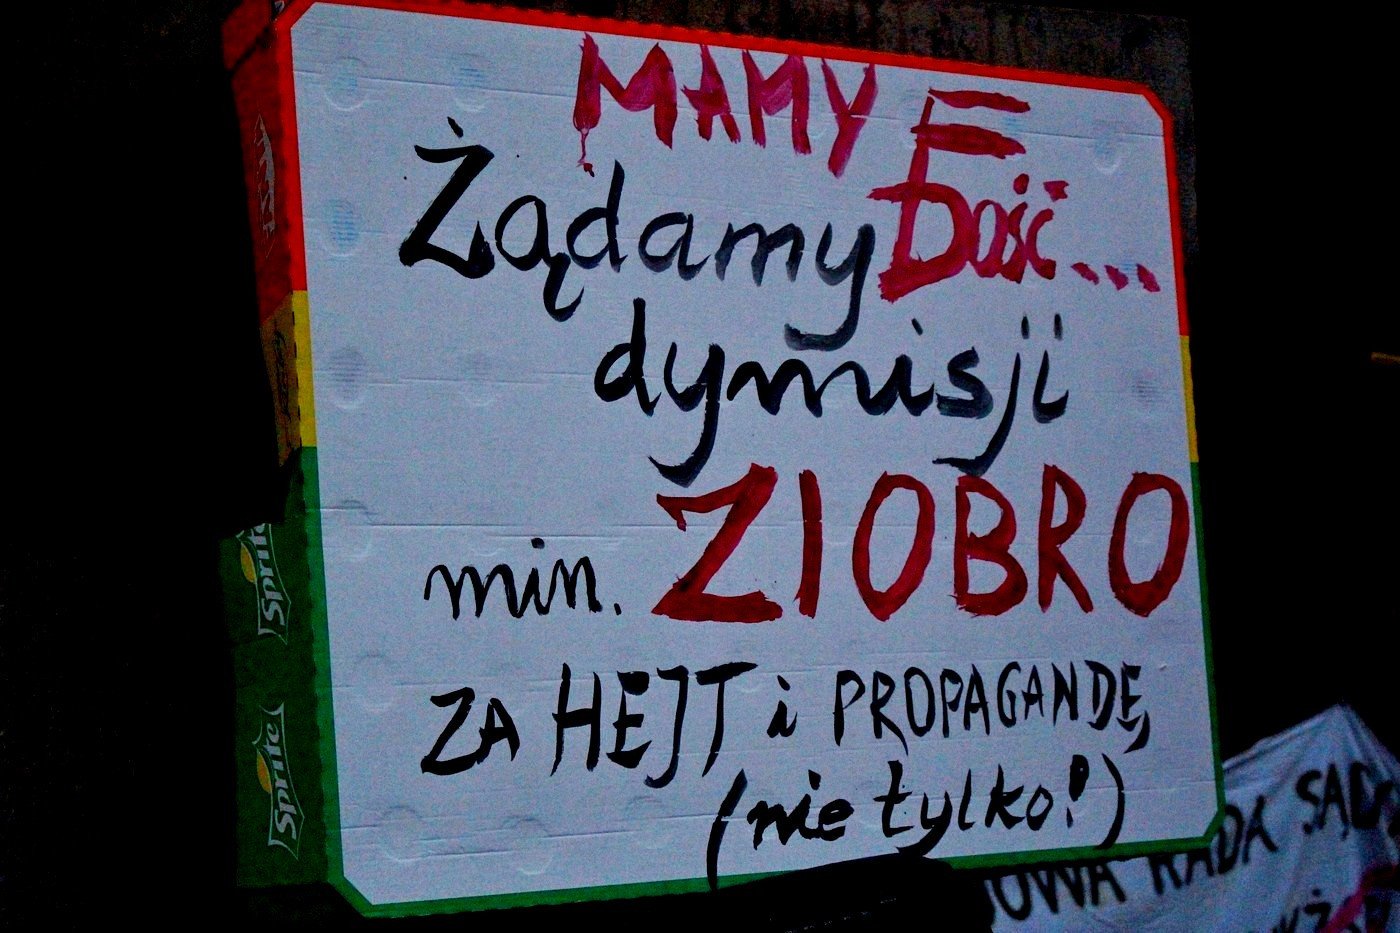 MAMY
Dość...
Żądamy
dymisji
min. ZIOBRO
ZA HEJT i PROPAGANDĘ,
(nie tylko!)
Sprite
Sprite
OWA RADA SĄD